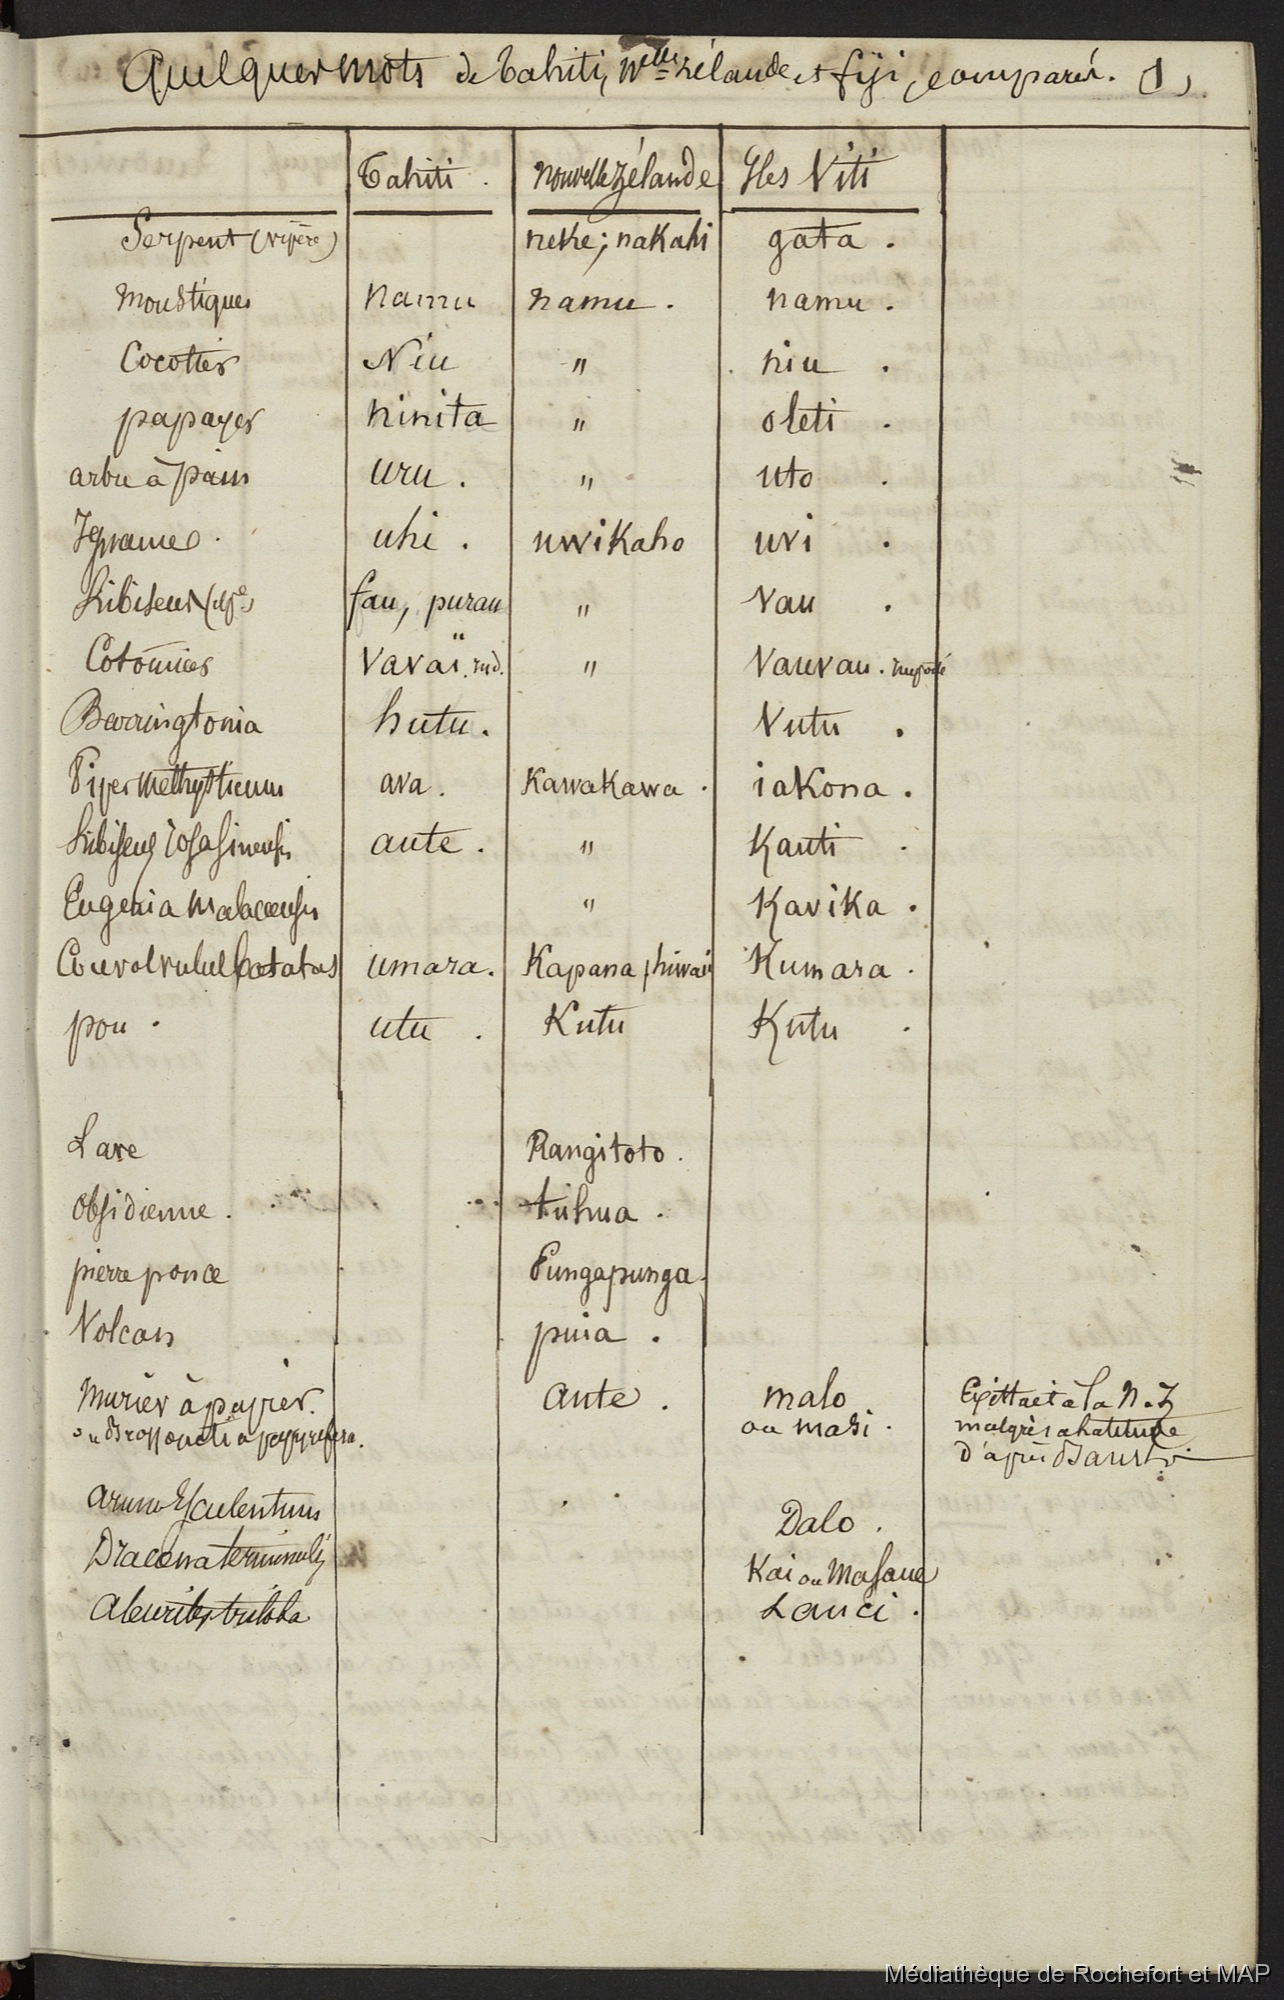 Quelques mots de Tahiti, Nelle Zélande et Fiji, comparés. (1)
Tahiti. Nouvelle Zélande Iles Viti
Serpent (vipère) neke; nakahi gata.
Moustiques namu namu. namu.
Cocotier Niu " niu.
papayer ninita " oleti.
arbre à pain uru. " uto.
Igname. uhi. uwikaho uvi.
hibiscus fau, purau " vau.
Cotonnier vavaï. ind. " vauvau. importé
Barringtonia hutu. vutu.
Piper methysticum ava. Kawakawa. iakona.
hibiscus rosa sinensis aute. " Kauti.
Eugenia Malaccensis " Kavika.
Convolvulus batatas umara. Kapana, hiwai Kumara.
pou. utu. Kutu Kutu.
Lave Rangitoto.
Obsidienne. tuhua.
pierre ponce Pungapunga.
Volcan puia.
Murier à papier. Aute. malo Existtait à la N. Z
ou Broussonetia papyrifera. ou masi. malgrès sa latitude
d'après
Arum Esculentum Dalo.
Dracoena terminalis Kai ou Masawe
Aleurites triloba Lauci.
Médiathèque de Rochefort et MAP